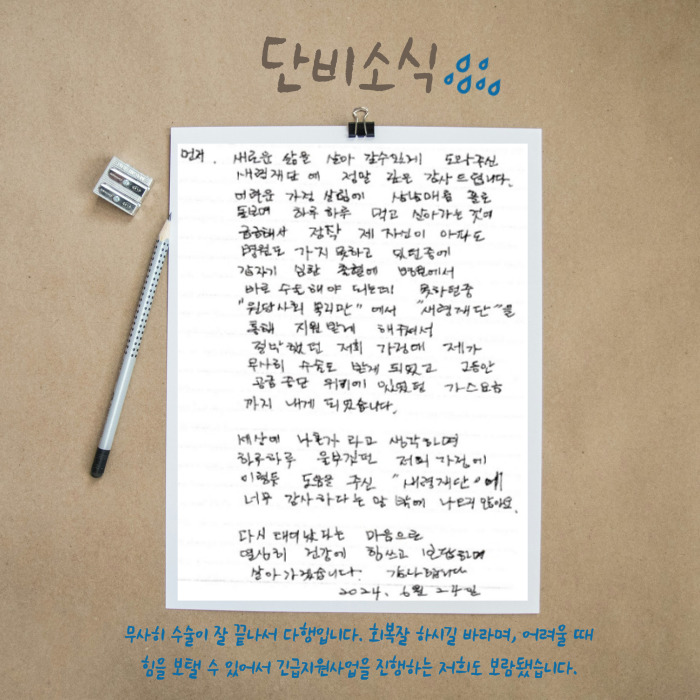 단비소식
먼저. 새로운 삶을 살아 갈수있게 도와주신
새령재단에 정말 깊은 감사드립니다.
어려운 가정 살림에 삼남매를 홀로
돌보며 하루하루 먹고 살아가는 것에
급급해서 정작 제 자신이 아파도
병원도 가지 못하고 있던중에
갑자기 심한 출혈에 병원에서
바로 수술해야 되는데 못하던중
"원당사회복지관"에서 "새령재단"을
통해 지원받게 해주셔서
절박했던 저희 가정에 제가
무사히 수술도 받게 되었고 그동안
공급중단 위기에 있었던 가스요금
까지 내게 되었습니다.
세상에 나혼자 라고 생각하며
하루하루 울부짖던 저희 가정에
이렇듯 도움을 주신 "새령재단"에
너무 감사하다는 말 밖에 나오지 않아요.
다시 태어났다는 마음으로
열심히 건강에 힘쓰고 보답하며
살아가겠습니다. 감사합니다
2024. 6월 24일
무사히 수술이 잘 끝나서 다행입니다. 회복잘 하시길 바라며, 어려울 때
힘을 보탤 수 있어서 긴급지원사업을 진행하는 저희도 보람됐습니다.